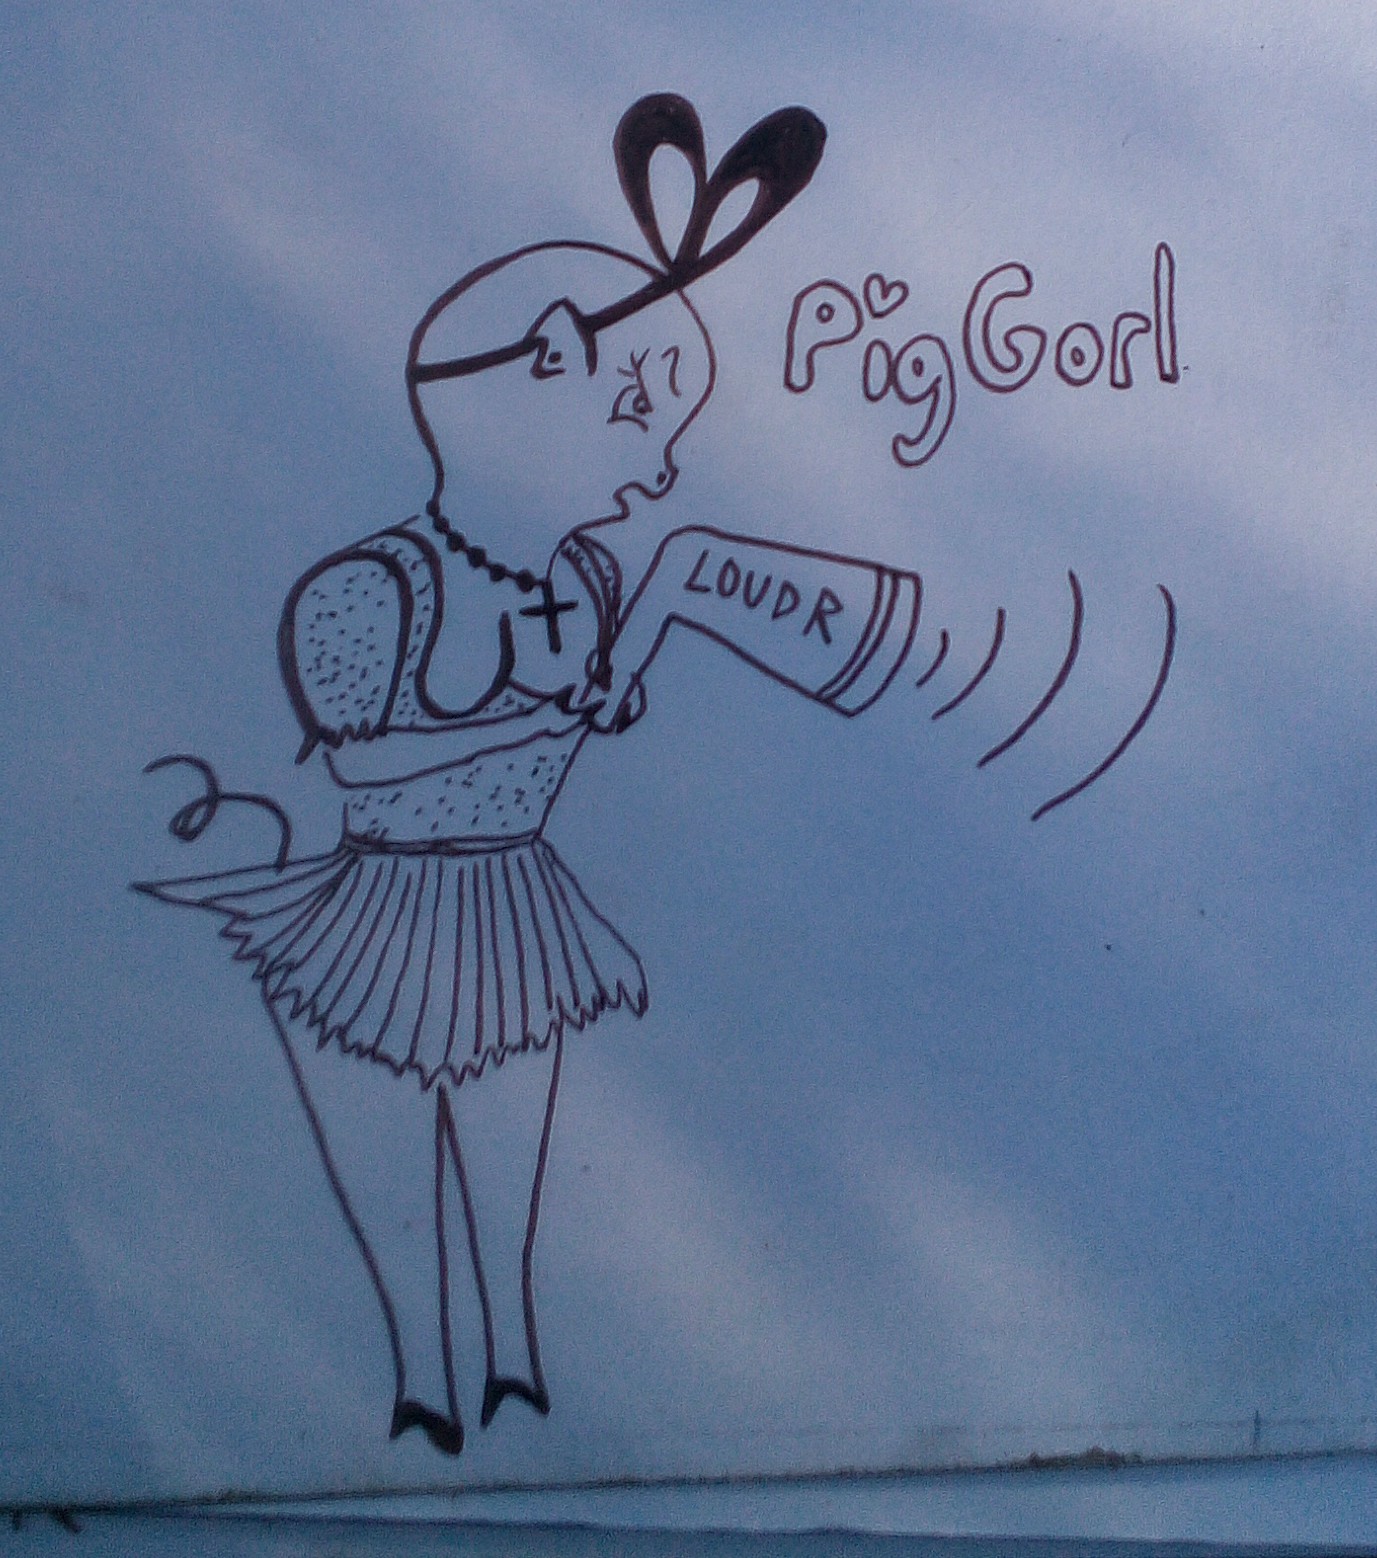 PigGorl
LOUDR